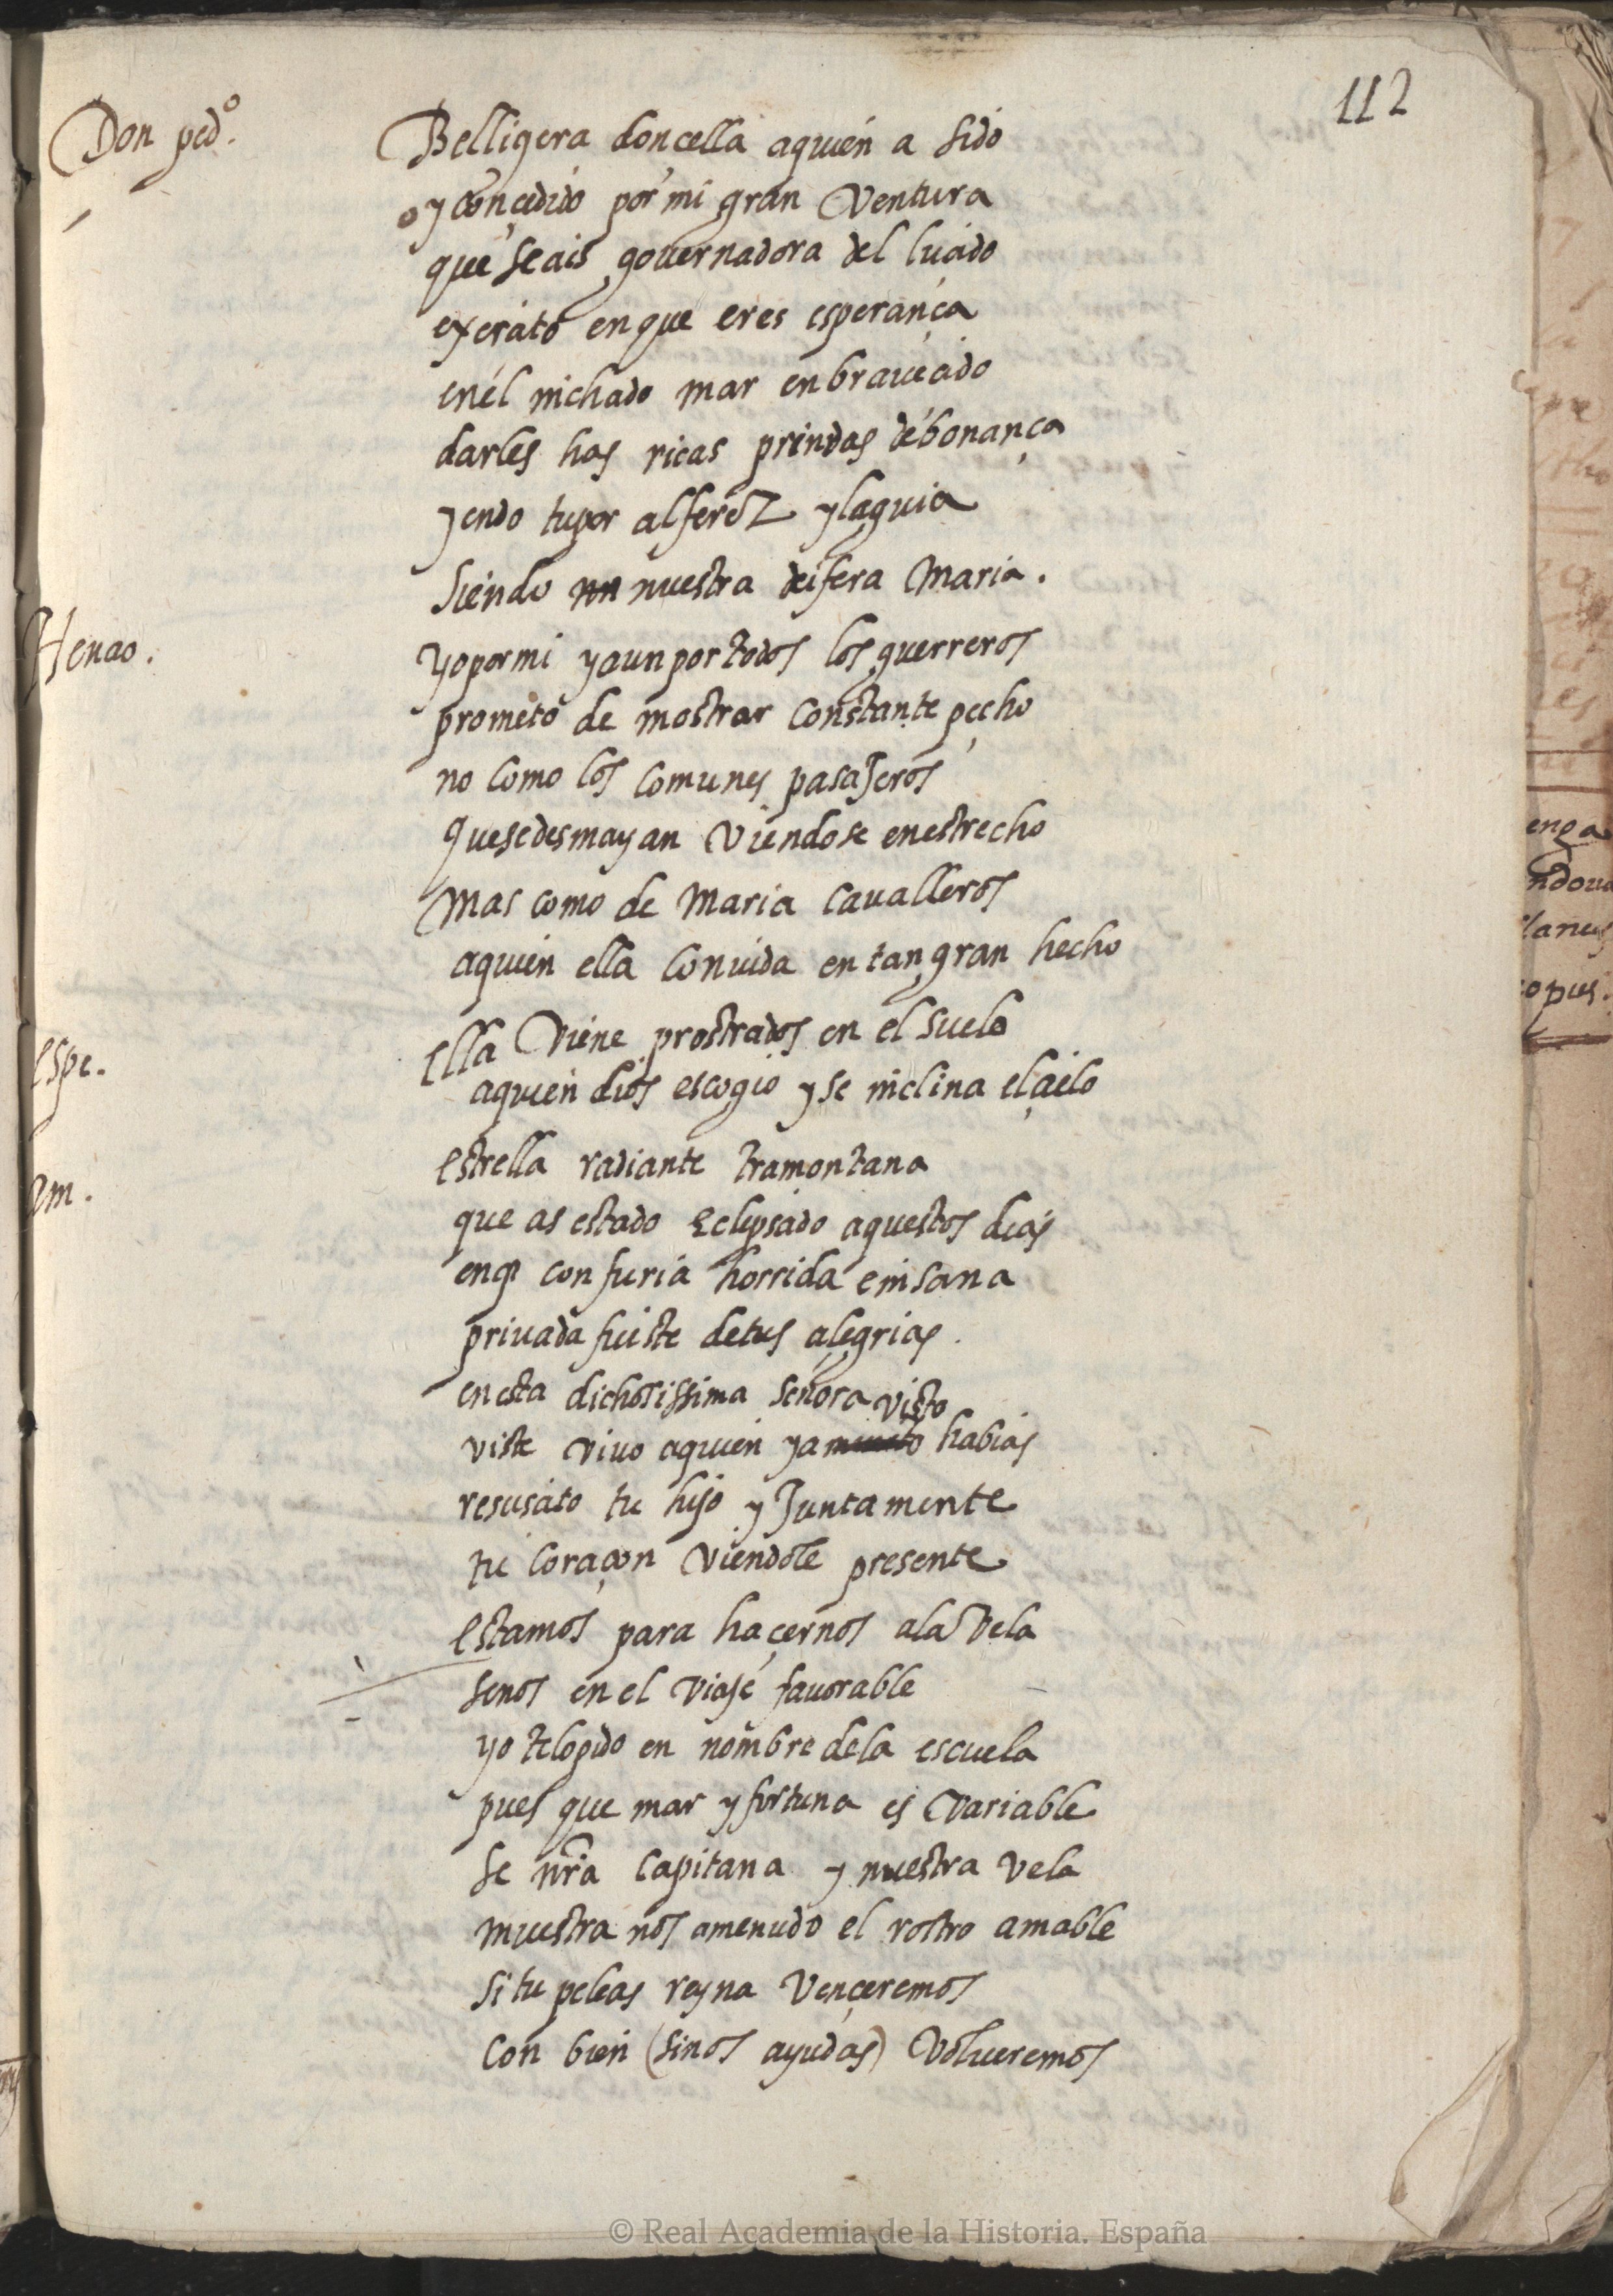 112
Don pedº.
Belligera doncella aquien a sido
oy concedido por mi gran Ventura
que seais governadora del lucido
exercito enque eres esperança
enel inchado mar enbravecido
darles has ricas prendas debonança
yendo tupor alferez ylaguia
siendo nuestra deifera Maria.
Henao.
yopormi yaunportodos los guerreros
prometo de mostrar Constante pecho
no como los comunes pasajeros
quesedesmayan viendose enestrecho
Mas como de Maria Cavalleros
aquien ella Convida en tan gran hecho
espe.
Ella Viene prostrados en el suelo
aquien dios escogio y se inclina elcielo
om.
estrella radiante tramontana
que as estado eclipsado aquestos dias
enq con furia horrida einsana
privada fuiste detus alegrias.
enesta dichosissima señora
viste vivo aquien ya muerto visto habias
resuscito tu hijo y Juntamente
tu coraçon viendole presente
estamos para haçernos ala vela
senos en el viaje favorable
yo telopido en nombre dela escuela
pues que mar y fortuna es variable
se nra Capitana y nuestra vela
muestra nos amenudo el rostro amable
si tu peleas reyna Vençeremos
Con bien (sinos ayudas) Volveremos
enga
opus.
© Real Academia de la Historia. España